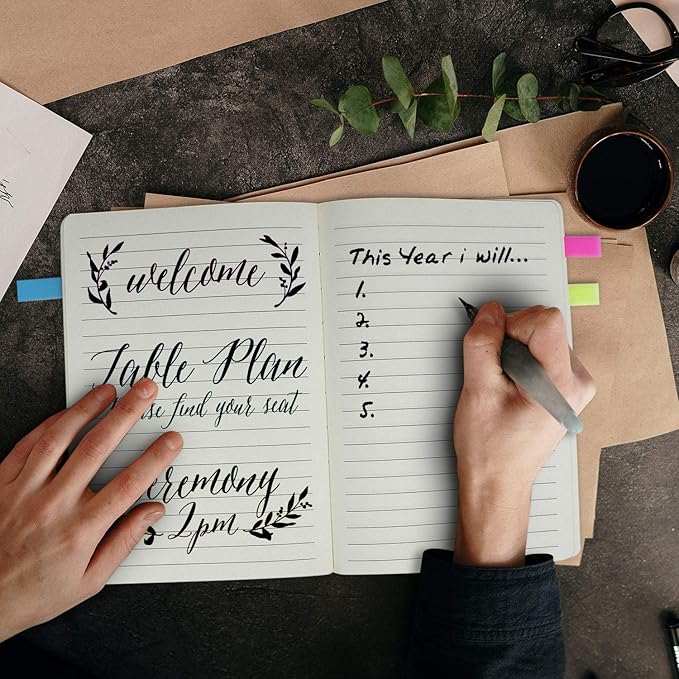 welcome
Table Plan
find your seat
2pm
This Year i will...
1.
2.
3.
4.
5.